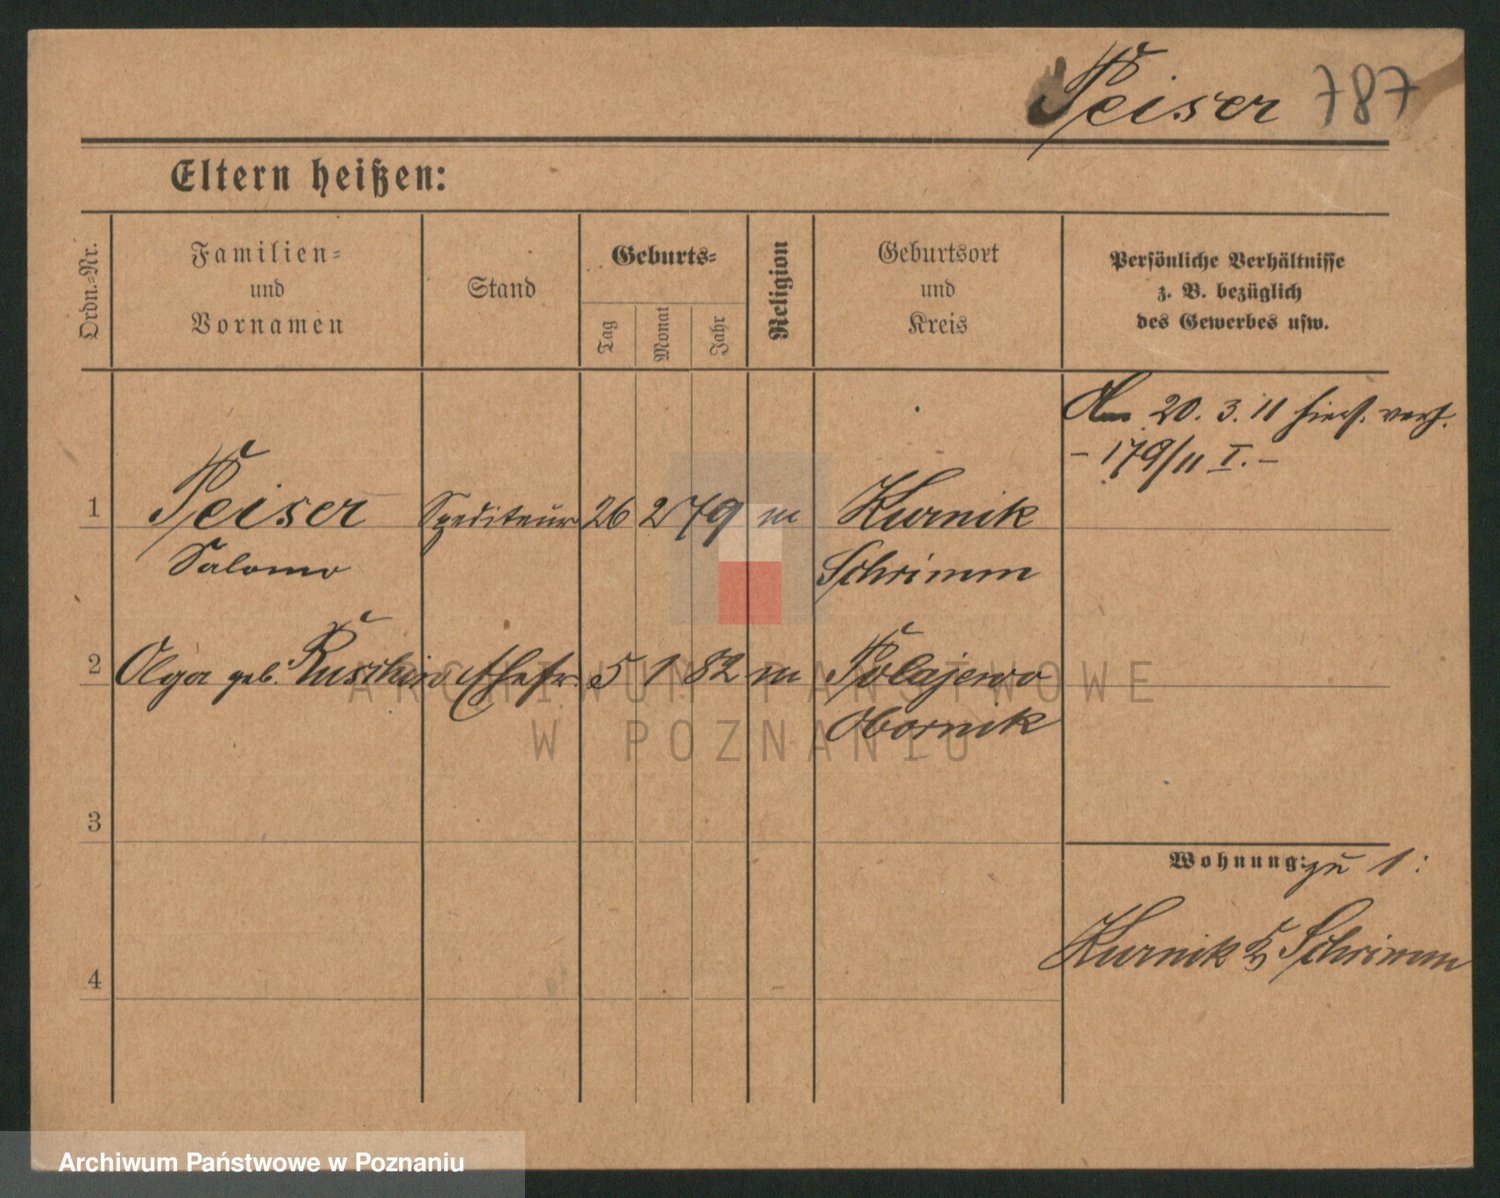 Peiser 787
Eltern heißen:
Ordn.-Nr.
Familien-
und
Vornamen
Stand
Geburts-
Tag
Monat
Jahr
Religion
Geburtsort
und
Kreis
Persönliche Verhältnisse
z. B. bezüglich
des Gewerbes usw.
20. 3. 11 hier verh.
- 179/11 I. -
1 Peiser Spediteur 26 2 79 m Kurnik
Salomo Schrimm
2 Olga geb. Ehefr. 5 1 82 m Polajewo
Obornik
3
Wohnung: zu 1:
Kurnik Schrimm
4
ARCHIWUM PAŃSTWOWE
W POZNANIU
Archiwum Państwowe w Poznaniu